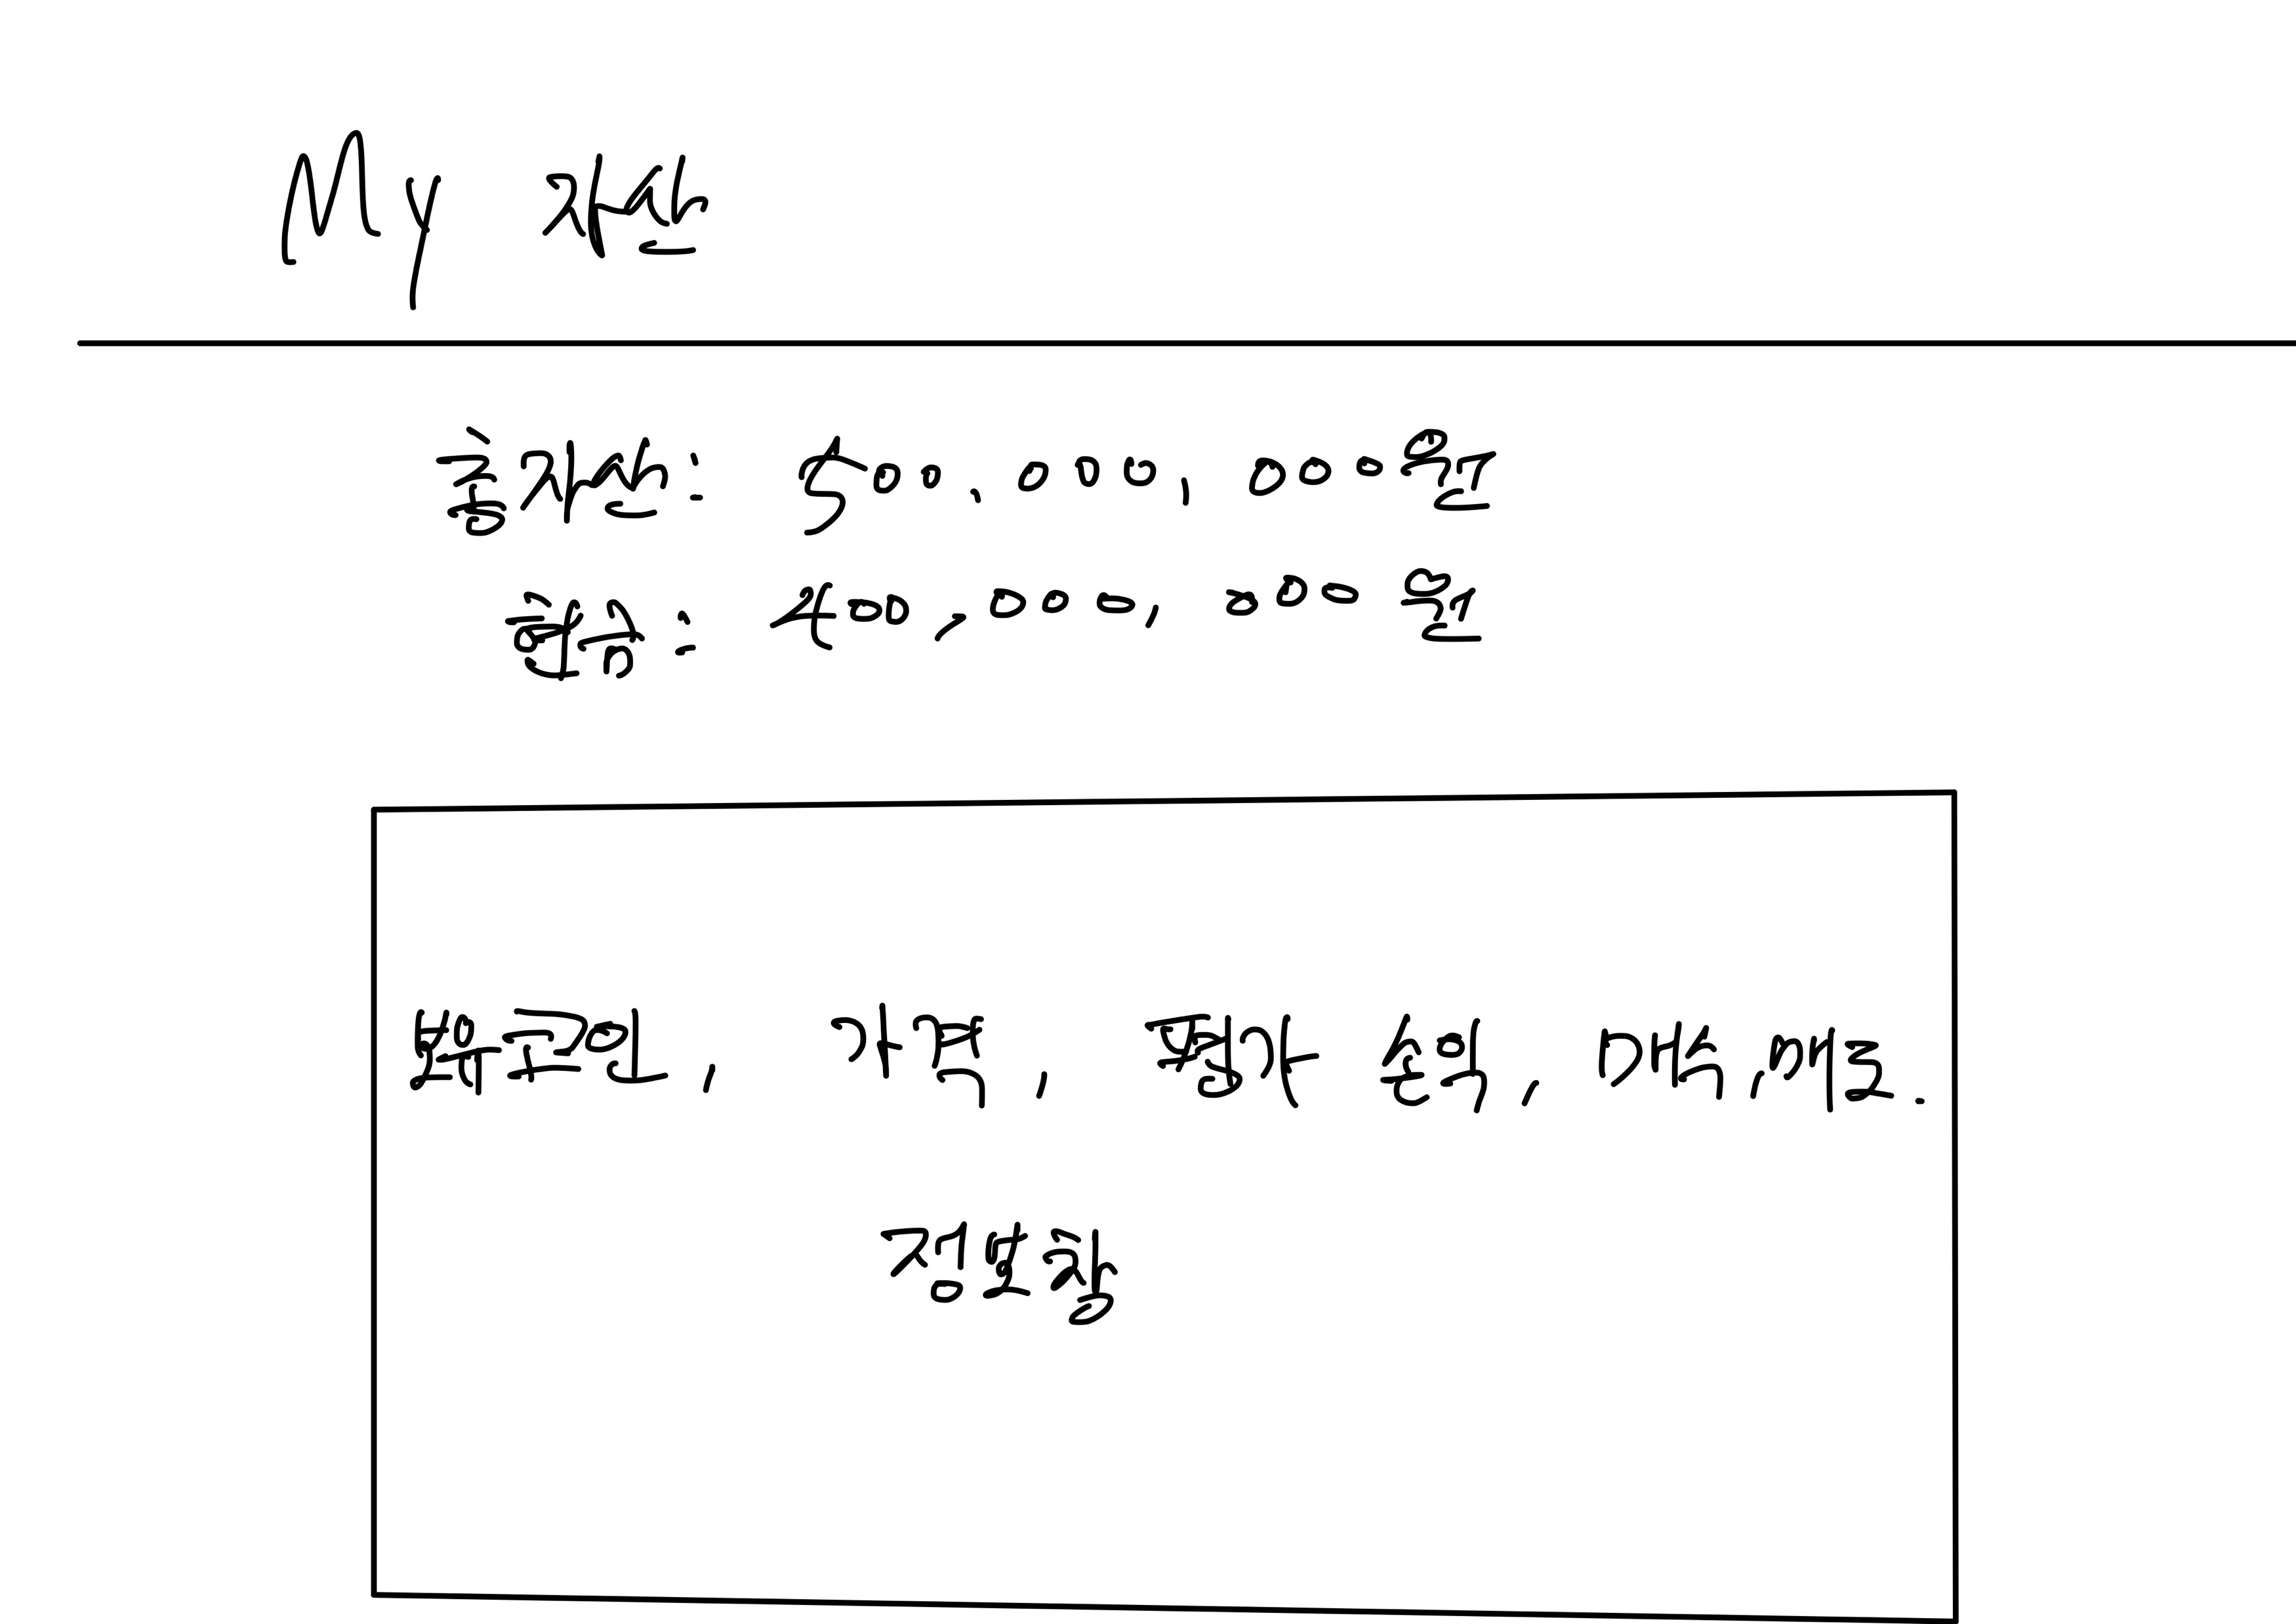 My 자산
총자산: 500,000,000원
현금: 400,000,000원
보유코인, 가격, 평가 손익, 매수,매도.
정보창